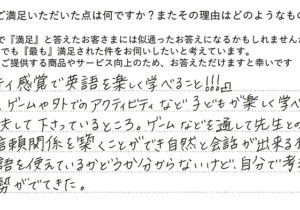 ご満足いただいた点は何ですか？またその理由はどのようなもの
で『満足』と答えたお客さまには似通ったお答えになるかもしれません
でも『最も』満足された件をお伺いしたいと考えています。
ご提供する商品やサービス向上のため、お答えただけますと幸いです
ティ感覚で英語を楽しく学べること!!!
、ゲームや外でのアクティビティなど子どもが楽しく学べ
夫して下さっているところ。ゲームなどを通して先生との
信頼関係を築くことができ自然と会話が出来る
語を使えているかどうか分からないけど、自分で考
勢がでてきた。